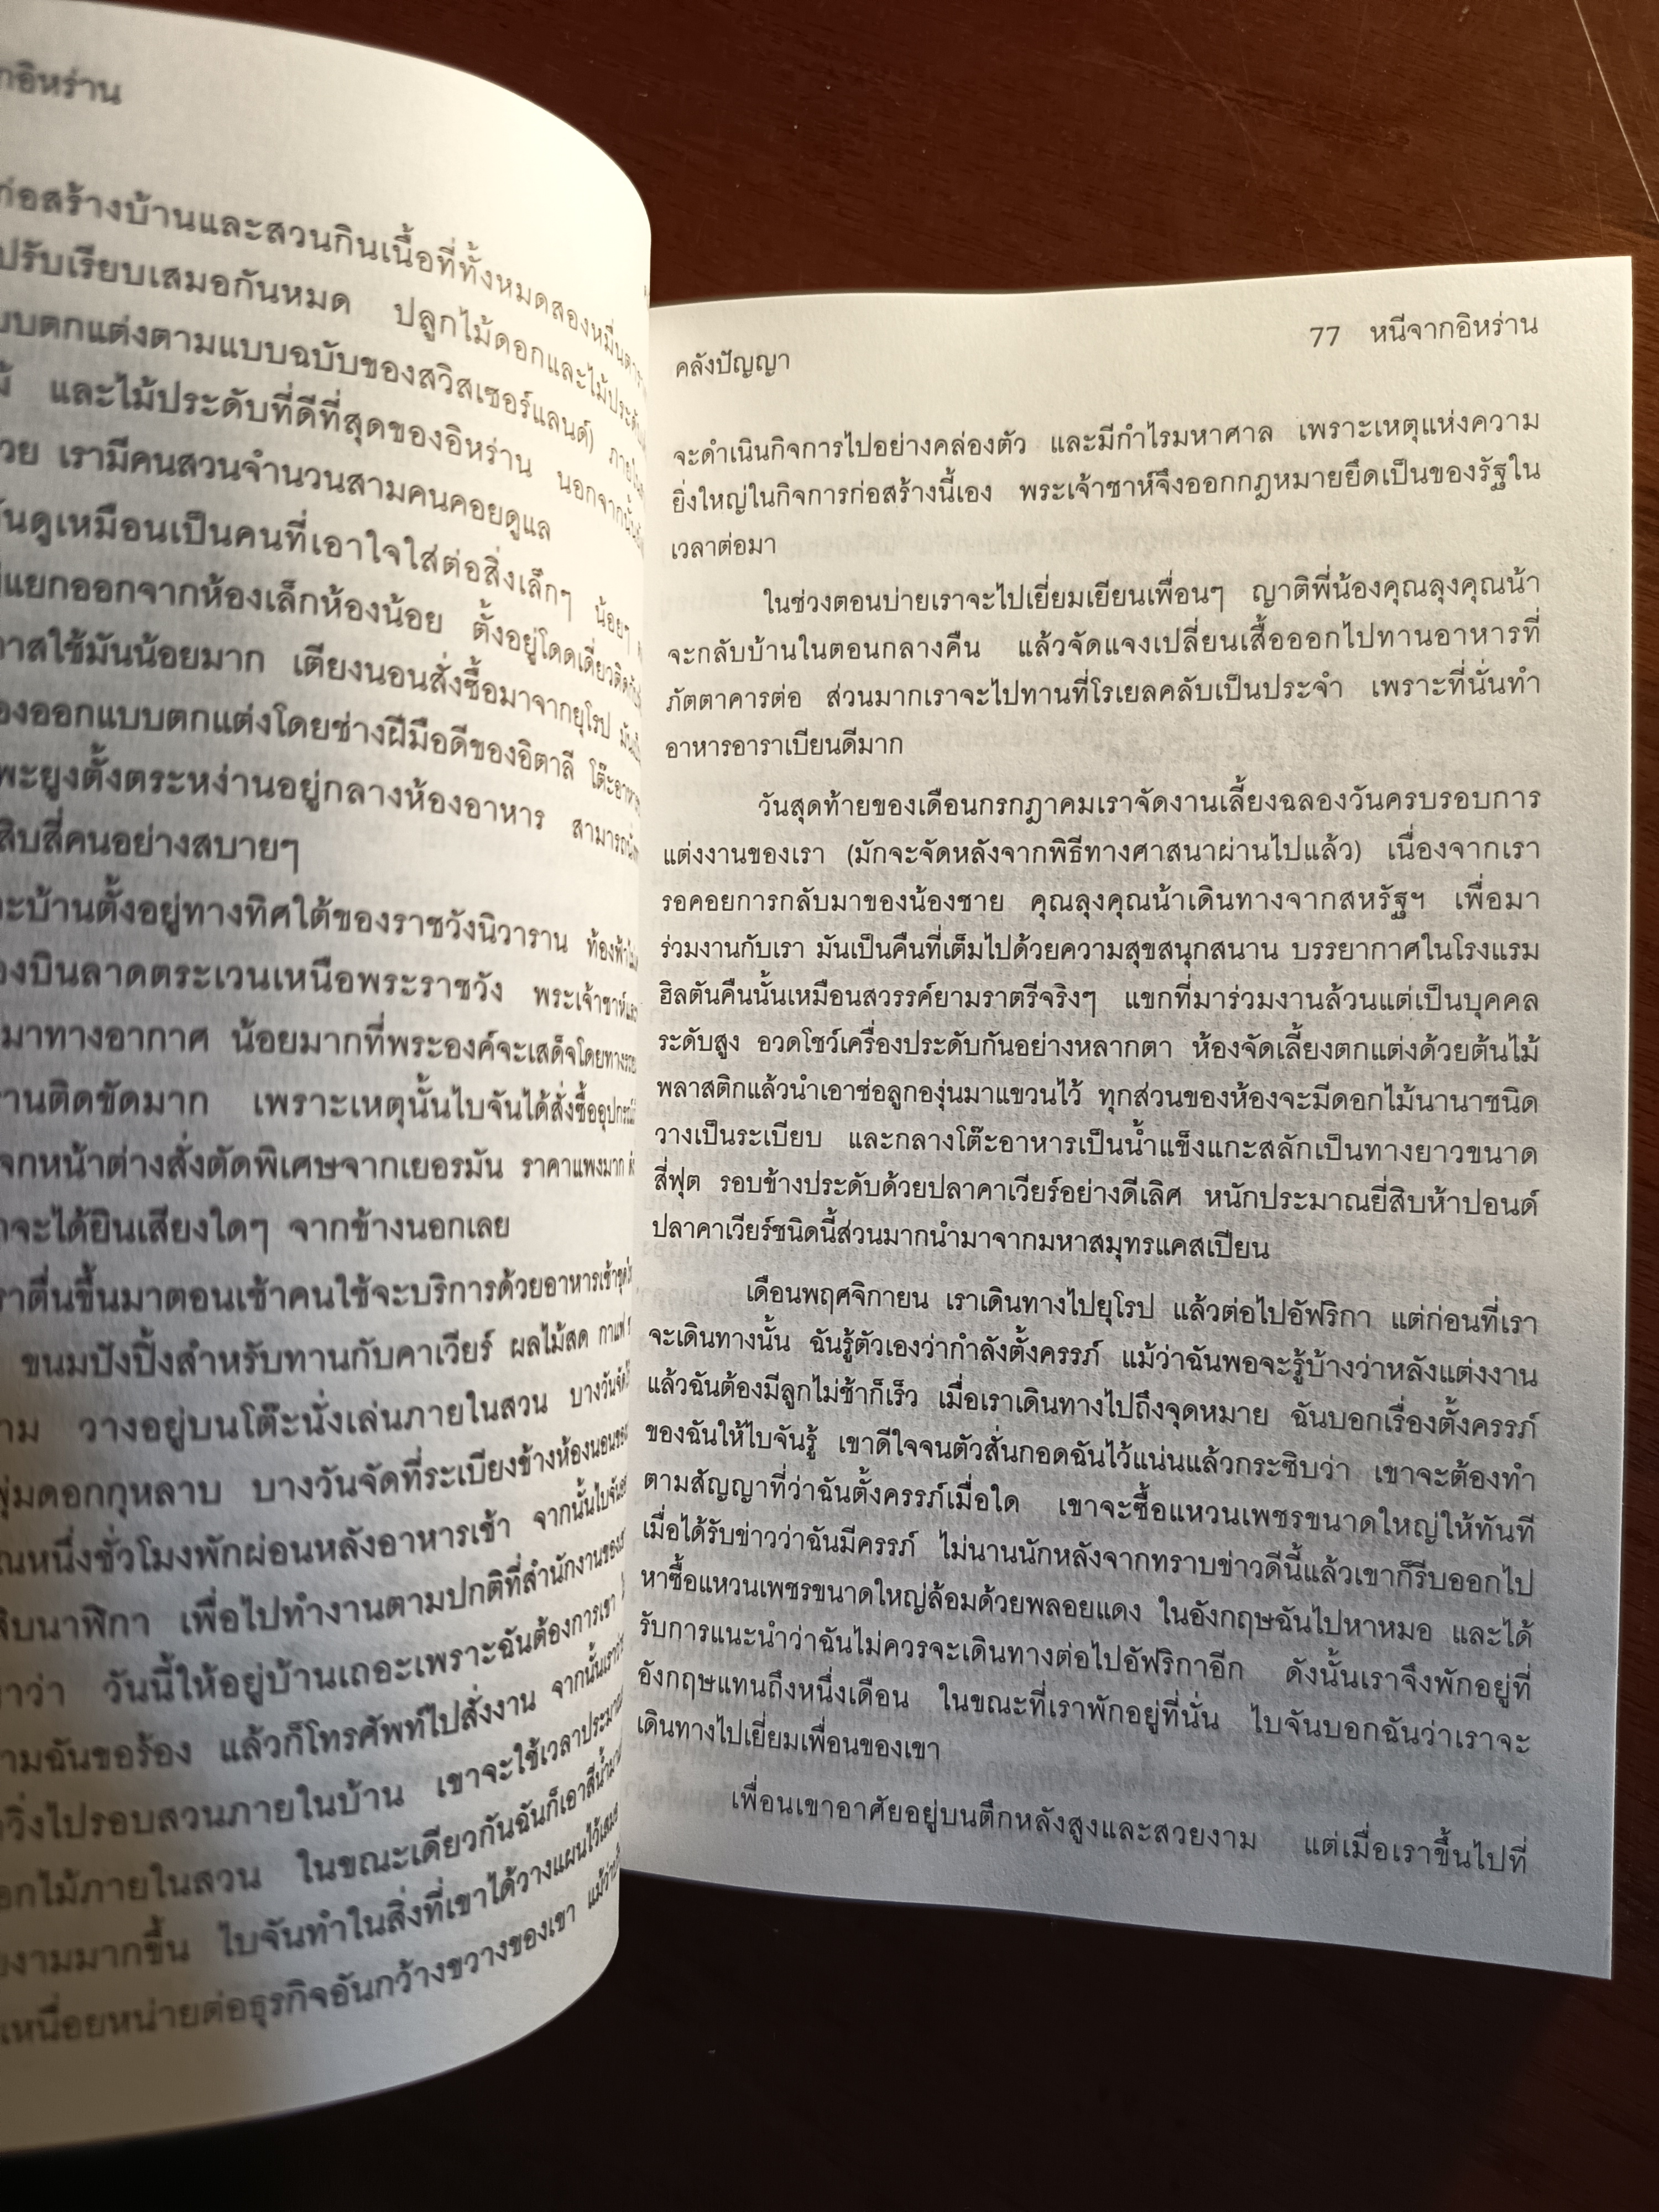 กอิหร่าน
ก่อสร้างบ้านและสวนกินเนื้อที่ทั้งหมดสองหมื่น
ปรับเรียบเสมอกันหมด ปลูกไม้ดอกและไม้ประดับ
บบตกแต่งตามแบบฉบับของสวิสเซอร์แลนด์)
และไม้ประดับที่ดีที่สุดของอิหร่าน นอกจากนั้น
วย เรามีคนสวนจำนวนสามคนคอยดูแล
นดูเหมือนเป็นคนที่เอาใจใส่ต่อสิ่งเล็กๆ น้อยๆ
แยกออกจากห้องเล็กห้องน้อย ตั้งอยู่โดดเดี่ยว
าสใช้มันน้อยมาก เตียงนอนสั่งซื้อมาจากยุโรป
องออกแบบตกแต่งโดยช่างฝีมือดีของอิตาลี
พะยูงตั้งตระหง่านอยู่กลางห้องอาหาร
สิบสี่คนอย่างสบายๆ
ะบ้านตั้งอยู่ทางทิศใต้ของราชวังนิวาราน ท้องฟ้า
องบินลาดตระเวนเหนือพระราชวัง พระเจ้าชาห์
มาทางอากาศ น้อยมากที่พระองค์จะเสด็จโดยทาง
านติดขัดมาก เพราะเหตุนั้นไบจันได้สั่งซื้ออุปกรณ์
จกหน้าต่างสั่งตัดพิเศษจากเยอรมัน ราคาแพงมาก
จะได้ยินเสียงใดๆ จากข้างนอกเลย
ราตื่นขึ้นมาตอนเช้าคนใช้จะบริการด้วยอาหารเช้า
ขนมปังปิ้งสำหรับทานกับคาเวียร์ ผลไม้สด กาแฟ
าม วางอยู่บนโต๊ะนั่งเล่นภายในสวน บางวัน
พุ่มดอกกุหลาบ บางวันจัดที่ระเบียงข้างห้องนอน
ณหนึ่งชั่วโมงพักผ่อนหลังอาหารเช้า จากนั้นไบจัน
สิบนาฬิกา เพื่อไปทำงานตามปกติที่สำนักงานของ
าว่า วันนี้ให้อยู่บ้านเถอะเพราะฉันต้องการเขา
ามฉันขอร้อง แล้วก็โทรศัพท์ไปสั่งงาน จากนั้นเรา
วิ่งไปรอบสวนภายในบ้าน เขาจะใช้เวลาประมาณ
อกไม้ภายในสวน ในขณะเดียวกันฉันก็เอาสีน้ำมา
งามมากขึ้น ไบจันทำในสิ่งที่เขาได้วางแผนไว้เสมอ
เหนื่อยหน่ายต่อธุรกิจอันกว้างขวางของเขา แม้ว่า
คลังปัญญา 77 หนีจากอิหร่าน
จะดำเนินกิจการไปอย่างคล่องตัว และมีกำไรมหาศาล เพราะเหตุแห่งความ
ยิ่งใหญ่ในกิจการก่อสร้างนี้เอง พระเจ้าชาห์จึงออกกฎหมายยึดเป็นของรัฐใน
เวลาต่อมา
ในช่วงตอนบ่ายเราจะไปเยี่ยมเยียนเพื่อนๆ ญาติพี่น้องคุณลุงคุณน้า
จะกลับบ้านในตอนกลางคืน แล้วจัดแจงเปลี่ยนเสื้อออกไปทานอาหารที่
ภัตตาคารต่อ ส่วนมากเราจะไปทานที่โรเยลคลับเป็นประจำ เพราะที่นั่นทำ
อาหารอาราเบียนดีมาก
วันสุดท้ายของเดือนกรกฎาคมเราจัดงานเลี้ยงฉลองวันครบรอบการ
แต่งงานของเรา (มักจะจัดหลังจากพิธีทางศาสนาผ่านไปแล้ว) เนื่องจากเรา
รอคอยการกลับมาของน้องชาย คุณลุงคุณน้าเดินทางจากสหรัฐฯ เพื่อมา
ร่วมงานกับเรา มันเป็นคืนที่เต็มไปด้วยความสุขสนุกสนาน บรรยากาศในโรงแรม
ฮิลตันคืนนั้นเหมือนสวรรค์ยามราตรีจริงๆ แขกที่มาร่วมงานล้วนแต่เป็นบุคคล
ระดับสูง อวดโชว์เครื่องประดับกันอย่างหลากตา ห้องจัดเลี้ยงตกแต่งด้วยต้นไม้
พลาสติกแล้วนำเอาช่อลูกองุ่นมาแขวนไว้ ทุกส่วนของห้องจะมีดอกไม้นานาชนิด
วางเป็นระเบียบ และกลางโต๊ะอาหารเป็นน้ำแข็งแกะสลักเป็นทางยาวขนาด
สี่ฟุต รอบข้างประดับด้วยปลาคาเวียร์อย่างดีเลิศ หนักประมาณยี่สิบห้าปอนด์
ปลาคาเวียร์ชนิดนี้ส่วนมากนำมาจากมหาสมุทรแคสเปียน
เดือนพฤศจิกายน เราเดินทางไปยุโรป แล้วต่อไปอัฟริกา แต่ก่อนที่เรา
จะเดินทางนั้น ฉันรู้ตัวเองว่ากำลังตั้งครรภ์ แม้ว่าฉันพอจะรู้บ้างว่าหลังแต่งงาน
แล้วฉันต้องมีลูกไม่ช้าก็เร็ว เมื่อเราเดินทางไปถึงจุดหมาย ฉันบอกเรื่องตั้งครรภ์
ของฉันให้ไบจันรู้ เขาดีใจจนตัวสั่นกอดฉันไว้แน่นแล้วกระซิบว่า เขาจะต้องทำ
ตามสัญญาที่ว่าฉันตั้งครรภ์เมื่อใด เขาจะซื้อแหวนเพชรขนาดใหญ่ให้ทันที
เมื่อได้รับข่าวว่าฉันมีครรภ์ ไม่นานนักหลังจากทราบข่าวดีนี้แล้วเขาก็รีบออกไป
หาซื้อแหวนเพชรขนาดใหญ่ล้อมด้วยพลอยแดง ในอังกฤษฉันไปหาหมอ และได้
รับการแนะนำว่าฉันไม่ควรจะเดินทางต่อไปอัฟริกาอีก ดังนั้นเราจึงพักอยู่ที่
อังกฤษแทนถึงหนึ่งเดือน ในขณะที่เราพักอยู่ที่นั่น ไบจันบอกฉันว่าเราจะ
เดินทางไปเยี่ยมเพื่อนของเขา
เพื่อนเขาอาศัยอยู่บนตึกหลังสูงและสวยงาม แต่เมื่อเราขึ้นไปที่